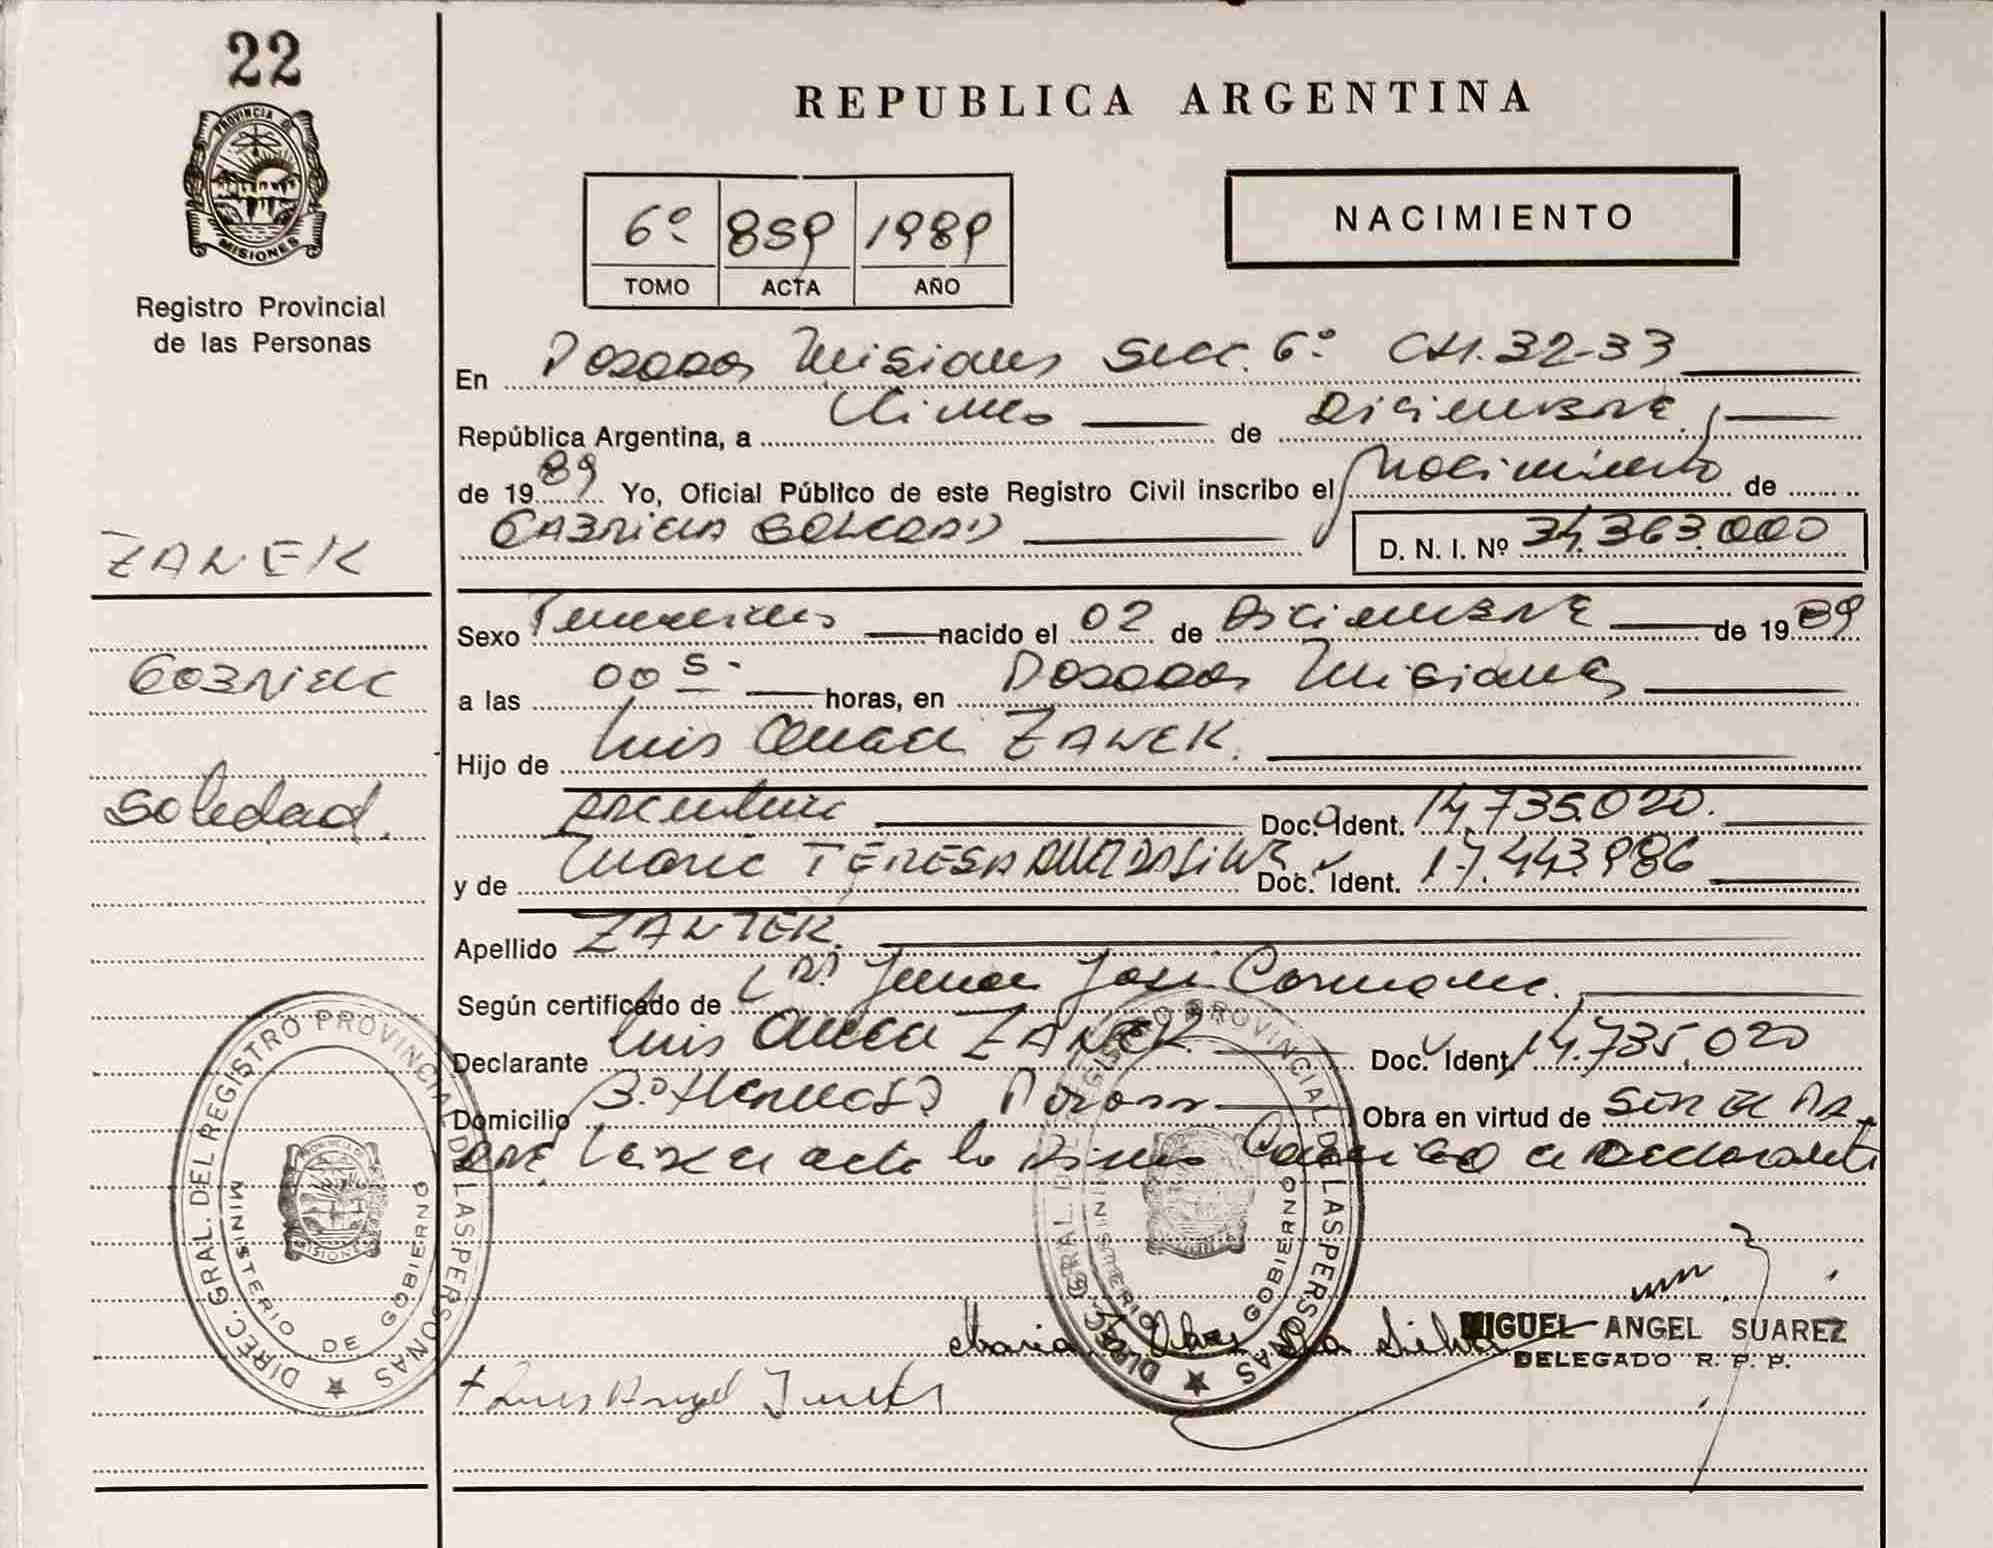 22
PROVINCIA D
MISIONES
Registro Provincial
de las Personas
ZANEK
Gabriela
Soledad.
REPUBLICA ARGENTINA
6º 859 1989
TOMO ACTA AÑO
NACIMIENTO
En Posadas Misiones Secc. 6º CH. 32-33
República Argentina, a Cinco de Diciembre
de 1989 Yo, Oficial Público de este Registro Civil inscribo el Nacimiento de
GABRIELA SOLEDAD D. N. I. Nº 34.363.000
Sexo Femenino nacido el 02 de Diciembre de 1989
a las 00 5 horas, en Posadas Misiones
Hijo de Luis ZANEK.
Argentino Doc. Ident. 14.735.020.
y de Maria TERESA DA SILVA Doc. Ident. 17.443.986
Apellido
Según certificado de Juan José
Declarante Luis ZANEK Doc. Ident. 14.735.020
Domicilio Bº Obra en virtud de SER EL PA
DRE acta declarante
DIREC. GRAL. DEL REGISTRO PROVINCIAL DE LAS PERSONAS
MINISTERIO DE GOBIERNO
MISIONES
DIREC. GRAL. DEL REGISTRO PROVINCIAL DE LAS PERSONAS
MINISTERIO GOBIERNO
Maria Da Silva
MIGUEL ANGEL SUAREZ
DELEGADO R. P. P.
Luis Angel